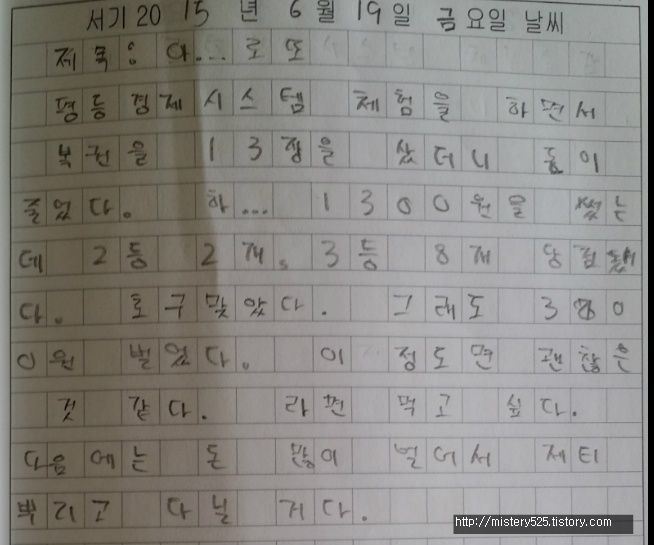 서기 2015년 6월 19일 금요일 날씨
제목: 다... 로또
평등경제시스템 체험을 하면서
복권을 13장을 샀더니 돈이
줄었다. 하... 1300원을 썼는
데 2등 2개, 3등 8개 당첨됐
다. 호구 맞았다. 그래도 3
0원 벌었다. 이 정도면 괜찮은
것 같다. 라면 먹고 싶다.
다음에는 돈 많이 벌어서 제티
뿌리고 다닐 거다.
http://mistery525.tistory.com